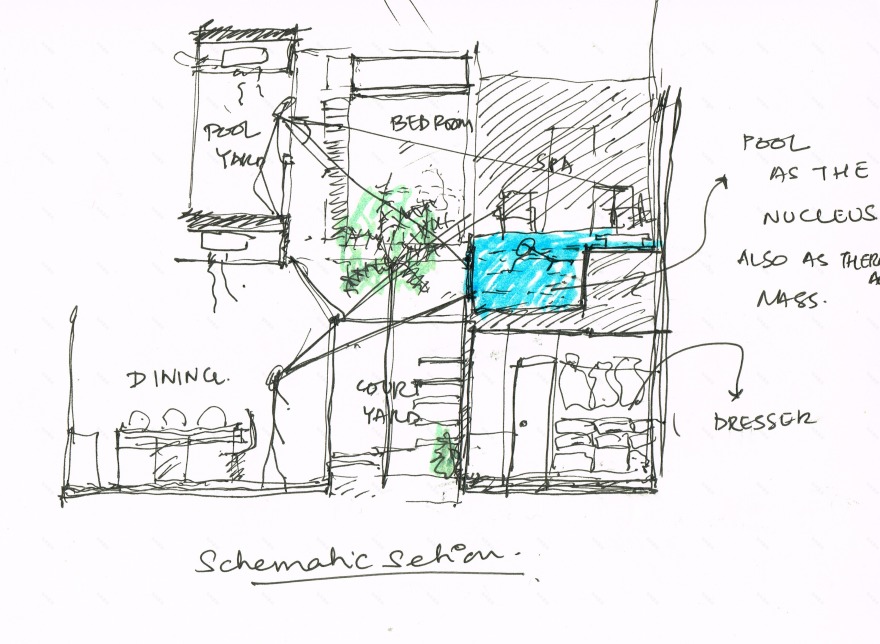 POOL
YARD
BEDROOM
SPA
POOL
AS THE
NUCLEUS
ALSO AS THER
MASS.
DINING.
COURT
YARD
DRESSER
Schematic Setion.